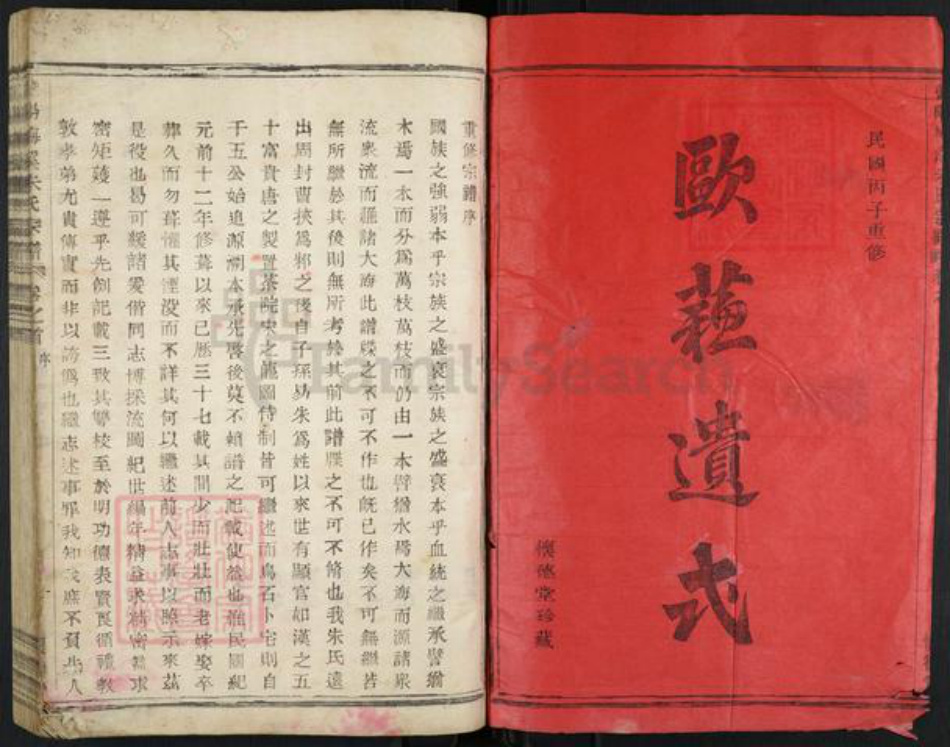 民國丙子重修
歐蘇遺式
懷德堂珍藏
重修宗譜序
國族之強弱本乎宗族之盛衰宗族之盛衰本乎血統之繼承譬猶
木焉一本而分爲萬枝萬枝而仍由一本譬猶水焉大海而源諸衆
流衆流而匯諸大海此譜牒之不可不作也旣已作矣不可無繼苟
無所繼於其後則無所考於其前此譜牒之不可不脩也我朱氏遠
出周封曹挾爲邾之後自子孫易朱爲姓以來世有顯官如漢之五
十富貴唐之製置茶院宋之龍圖侍制皆可繼述而烏石小宅則自
千五公始追源溯本承先啓後莫不賴譜之記載使然也推民國紀
元前十二年修葺以來已歷三十七載其間少而壯壯而老嫁娶卒
葬久而勿葺懼其湮沒而不詳其何以繼述前人志事以照示來茲
是役也曷可緩諸爰偕同志博採流圖紀世編年精益求精密益求
密矩矱一遵乎先創記載三致其讐校至於明功德表賢良循禮教
敦孝弟尤貴傳實而非以誇僞也繼志述事罪我知我庶不負先人
朱氏宗譜 卷之首 序
FamilySearch